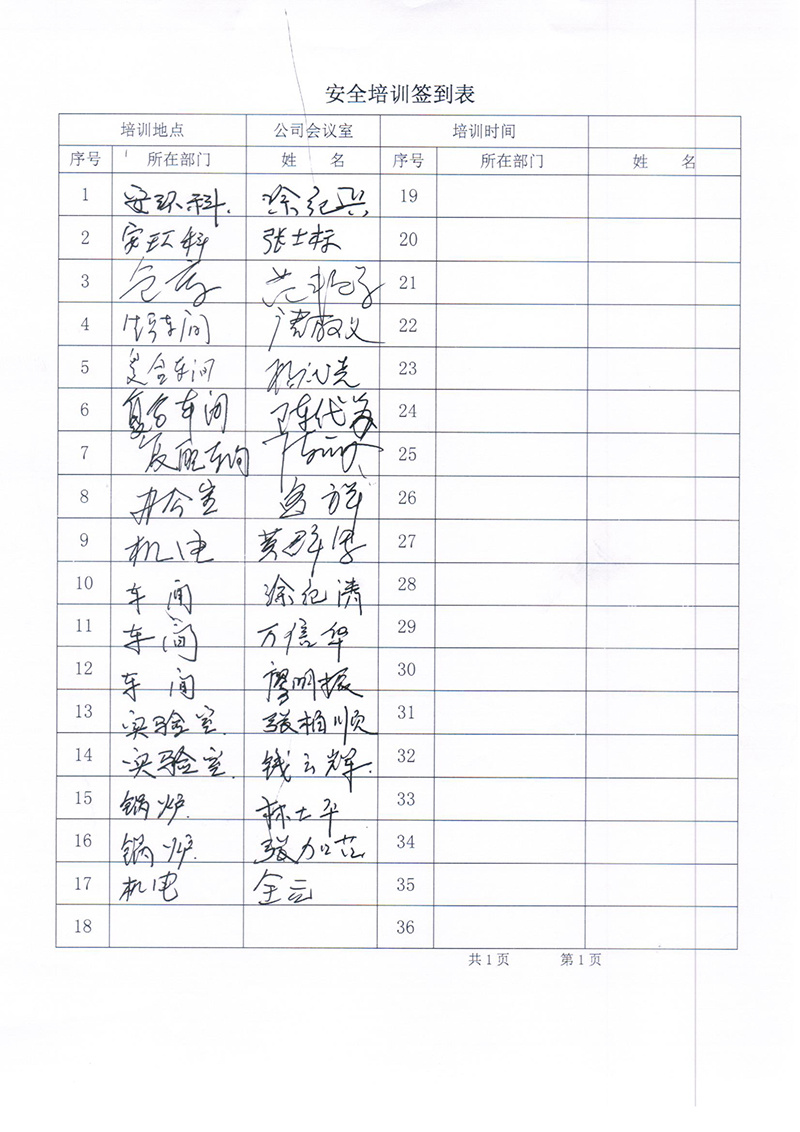 安全培训签到表
培训地点 公司会议室 培训时间
序号 所在部门 姓 名 序号 所在部门 姓 名
1 安环科 徐纪兴 19
2 安环科 张士标 20
3 仓库 21
4 车间 22
5 复合车间 23
6 复合车间 24
7 车间 25
8 办公室 26
9 机电 黄 27
10 车间 徐纪清 28
11 车间 万信华 29
12 车间 廖明振 30
13 实验室 张柏顺 31
14 实验室 钱云辉 32
15 锅炉 林士平 33
16 锅炉 张加 34
17 机电 全云 35
18 36
共1页 第1页